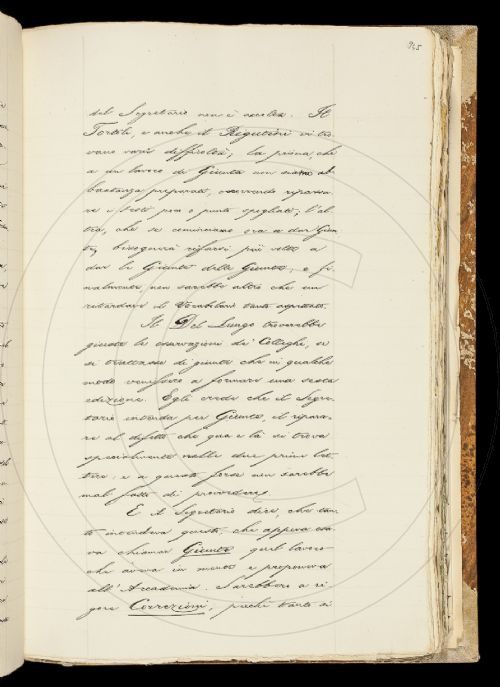 945
del Segretario non è accolta. Il
Tortoli, e anche il Rigutini vi tro-
vano varie difficoltà; la prima, che
a un lavoro di Giunta non siamo ab-
bastanza preparati, occorrendo riprova-
re i testi poco o punto spogliati; l'al-
tra, che se cominciamo ora a dar Giun-
te, bisognerà rifarsi più volte a
dar le Giunte delle Giunte; e fi-
nalmente, non sarebbe altro che un
ritardare il Vocabolario tanto aspettato.
Il Del Lungo troverebbe
giuste le osservazioni de' Colleghi, se
si trattasse di giunte che in qualche
modo venissero a formare una sesta
edizione. Egli crede che il Segre-
tario intenda per Giunte, il ripara-
re al difetto che qua e là si trova
specialmente nelle due prime let-
tere, e a questo forse non sarebbe
mal fatto di provvedere.
E il Segretario dice, che tan-
to intendeva questo, che appena osa-
va chiamar Giunte quel lavoro
che aveva in mente e proponeva
all'Accademia. Sarebbero a ri-
gore Correzioni, perchè tanto si